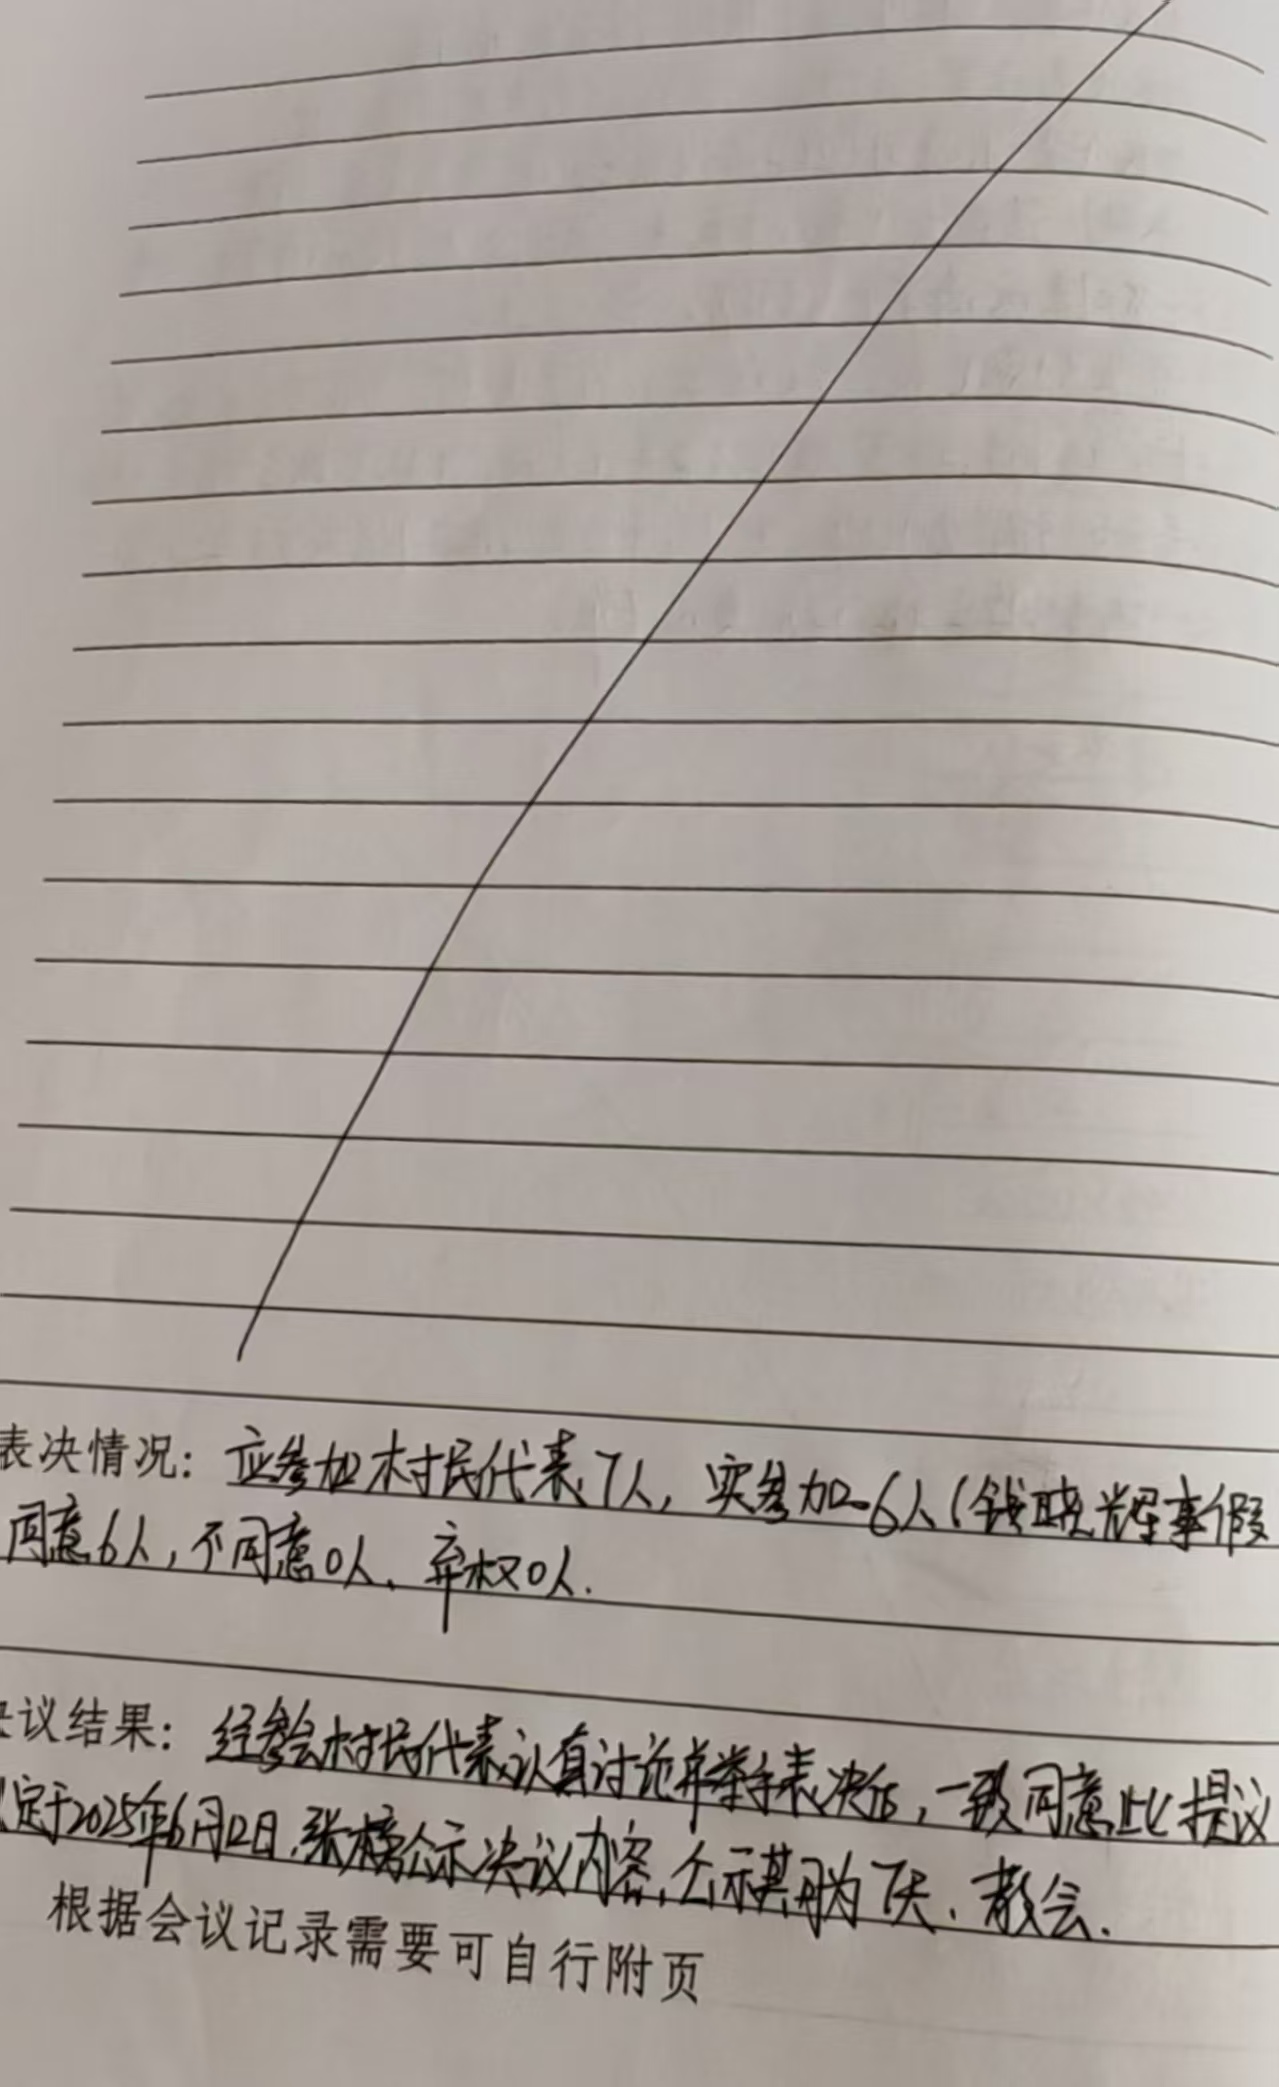 表决情况：应参加村民代表7人，实参加6人(钱晓辉事假
同意6人，不同意0人、弃权0人.
议结果：经参会村民代表认真讨论并举手表决后，一致同意此提议
定于2025年6月12日.张榜公示决议内容，公示期为7天、散会.
根据会议记录需要可自行附页